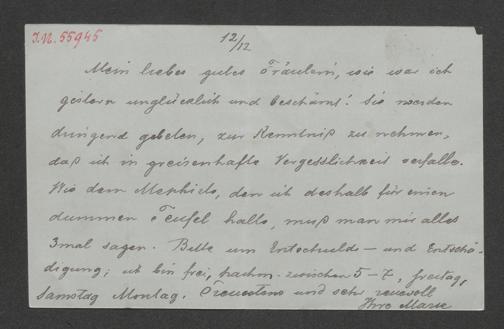 I.N. 55945
12/12
Mein liebes gutes Fräulein, wie war ich
gestern unglücklich und beschämt! Sie werden
dringend gebeten, zur Kenntniß zu nehmen,
daß ich in greisenhafte Vergesslichkeit verfalle.
Wie dem Mephisto, den ich deshalb für einen
dummen Teufel halte, muß man mir alles
3mal sagen. Bitte um Entschuld- und Entschä-
digung; ich bin frei, nachm. zwischen 5-7, freitag,
Samstag Montag. Treuestens und sehr reuevoll
Ihre Marie